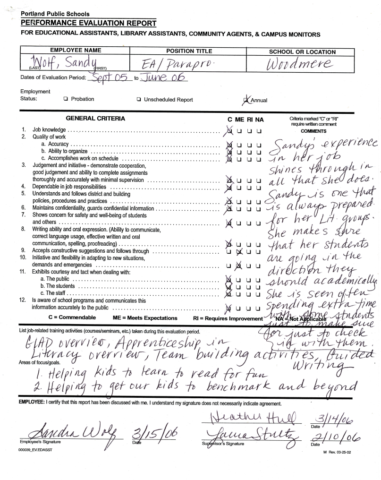 Portland Public Schools
PERFORMANCE EVALUATION REPORT
FOR EDUCATIONAL ASSISTANTS, LIBRARY ASSISTANTS, COMMUNITY AGENTS, & CAMPUS MONITORS
EMPLOYEE NAME POSITION TITLE SCHOOL OR LOCATION
Wolf, Sandy EA/Parapro Woodmere
Dates of Evaluation Period: Sept 05 to June 06
Employment
Status: Probation Unscheduled Report Annual
GENERAL CRITERIA C ME RI NA Criteria marked "C" or "RI"
require written comment
COMMENTS
1. Job knowledge
2. Quality of work
a. Accuracy
b. Ability to organize
c. Accomplishes work on schedule
3. Judgement and initiative - demonstrate cooperation,
good judgement and ability to complete assignments
thoroughly and accurately with minimal supervision
4. Dependable in job responsibilities
5. Understands and follows district and building
policies, procedures and practices
6. Maintains confidentiality, guards confidential information
7. Shows concern for safety and well-being of students
and others
8. Writing ability and oral expression. (Ability to communicate,
correct language usage, effective written and oral
communication, spelling, proofreading)
9. Accepts constructive suggestions and follows through
10. Initiative and flexibility in adapting to new situations,
demands and emergencies
11. Exhibits courtesy and tact when dealing with:
a. The public
b. The students
c. The staff
12. Is aware of school programs and communicates this
information accurately to the public
Sandy's experience
in her job
shines through in
all that she does.
Sandy is one that
is always prepared
for her LA groups.
She makes sure
that her students
are going in the
direction they
should academically
She is seen often
spending extra time
with some students
just to make sure
for just to check
in with them.
C = Commendable ME = Meets Expectations RI = Requires Improvement NA = Not Applicable
List job-related training activities (courses/seminars, etc.) taken during this evaluation period.
GLAD overview, Apprenticeship in
Literacy overview, Team building activities, Guided
Writing
Areas of focus/goals.
1 Helping kids to learn to read for fun
2 Helping to get our kids to benchmark and beyond
EMPLOYEE: I certify that this report has been discussed with me. I understand my signature does not necessarily indicate agreement.
Heather Hull 3/14/06
Sandra Wolf 3/15/06 2/10/06
Employee's Signature Date Supervisor's Signature Date